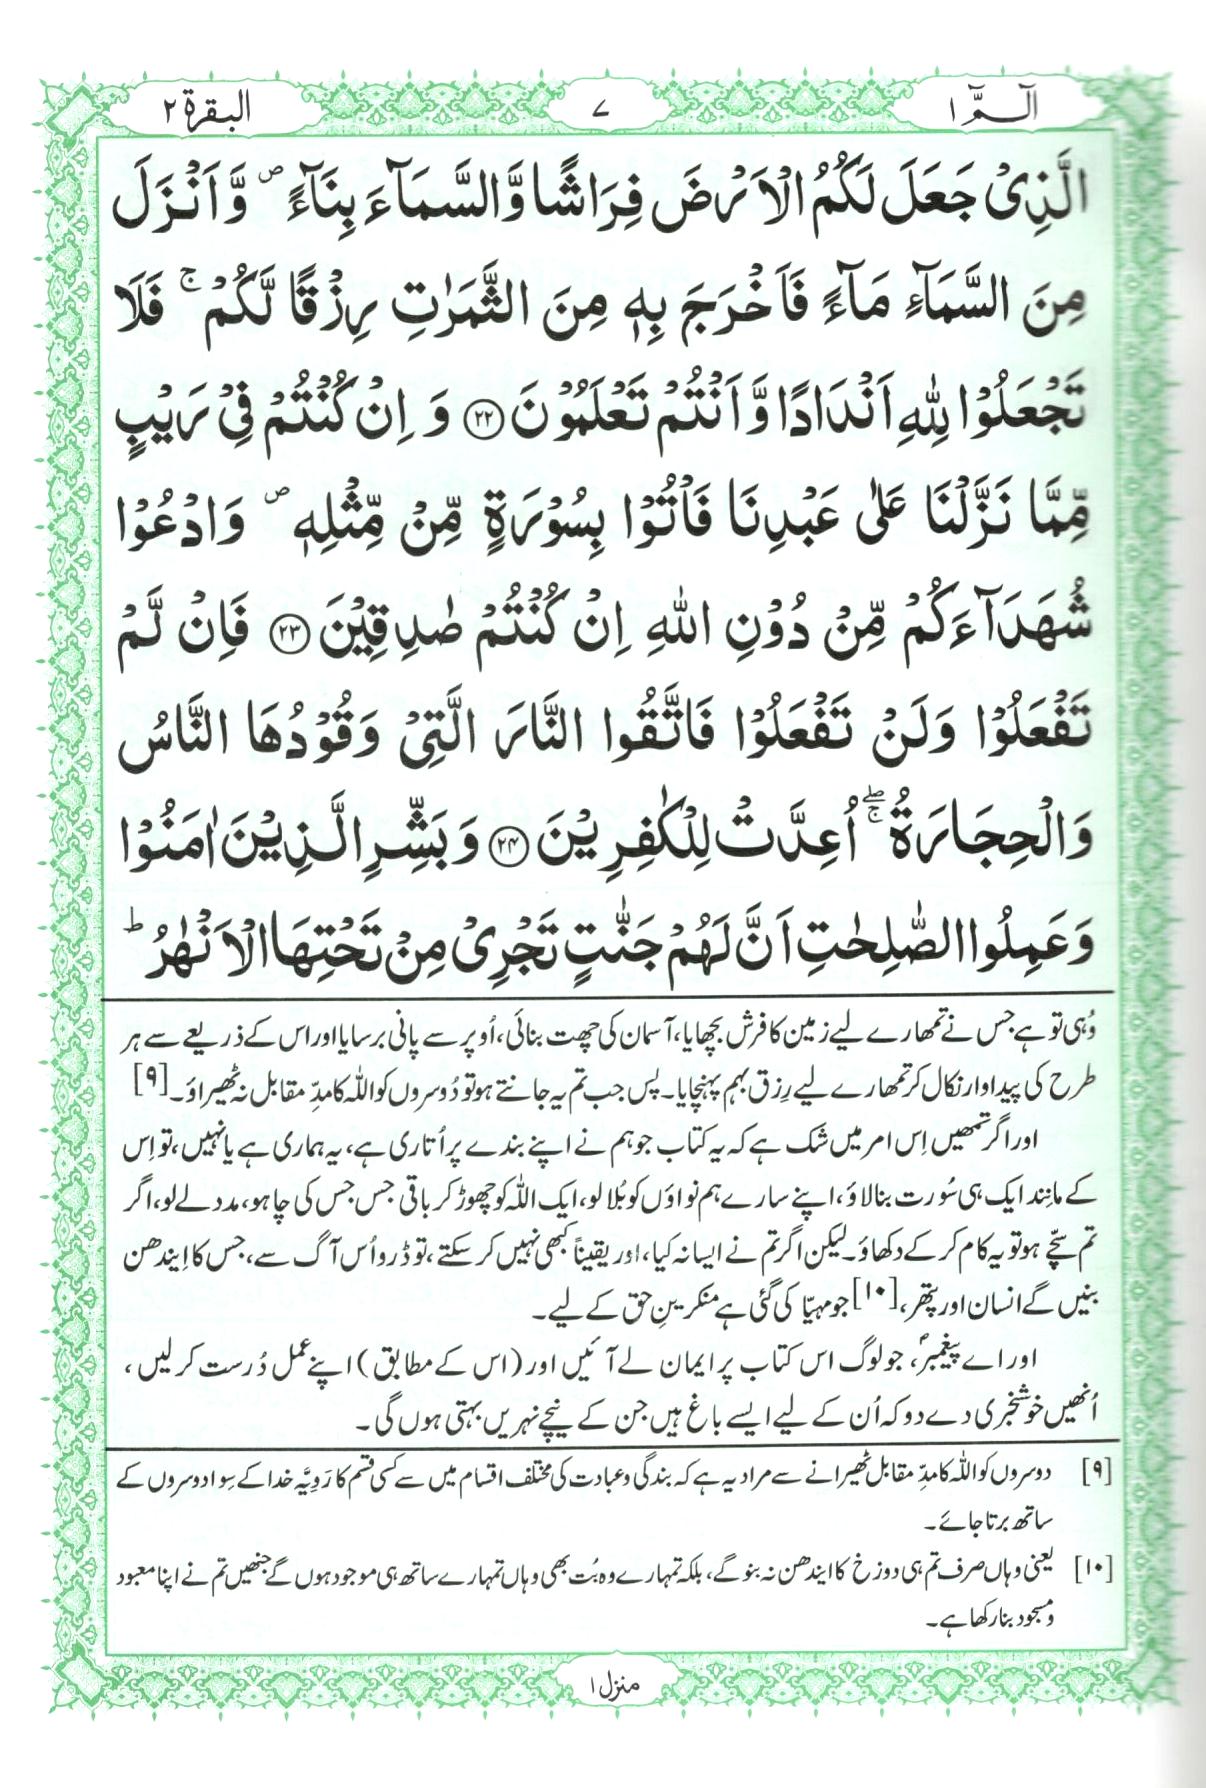 الٓمّٓ ۱
۷
البقرة ۲
الَّذِیْ جَعَلَ لَكُمُ الْاَرْضَ فِرَاشًا وَّالسَّمَآءَ بِنَآءً ۪ وَّاَنْزَلَ
مِنَ السَّمَآءِ مَآءً فَاَخْرَجَ بِهٖ مِنَ الثَّمَرٰتِ رِزْقًا لَّكُمْ ۚ فَلَا
تَجْعَلُوْا لِلّٰهِ اَنْدَادًا وَّاَنْتُمْ تَعْلَمُوْنَ ﴿۲۲﴾ وَ اِنْ كُنْتُمْ فِیْ رَیْبٍ
مِّمَّا نَزَّلْنَا عَلٰی عَبْدِنَا فَاْتُوْا بِسُوْرَةٍ مِّنْ مِّثْلِهٖ ۪ وَادْعُوْا
شُهَدَآءَكُمْ مِّنْ دُوْنِ اللّٰهِ اِنْ كُنْتُمْ صٰدِقِیْنَ ﴿۲۳﴾ فَاِنْ لَّمْ
تَفْعَلُوْا وَلَنْ تَفْعَلُوْا فَاتَّقُوا النَّارَ الَّتِیْ وَقُوْدُهَا النَّاسُ
وَالْحِجَارَةُ ۖۚ اُعِدَّتْ لِلْكٰفِرِیْنَ ﴿۲۴﴾ وَبَشِّرِ الَّذِیْنَ اٰمَنُوْا
وَعَمِلُوا الصّٰلِحٰتِ اَنَّ لَهُمْ جَنّٰتٍ تَجْرِیْ مِنْ تَحْتِهَا الْاَنْهٰرُ ؕ
وُہی تو ہے جس نے تمھارے لیے زمین کا فرش بچھایا، آسمان کی چھت بنائی، اُوپر سے پانی برسایا اور اس کے ذریعے سے ہر
طرح کی پیداوار نکال کر تمھارے لیے رِزق بہم پہنچایا۔ پس جب تم یہ جانتے ہو تو دُوسروں کو اللہ کا مدِّ مقابل نہ ٹھیراؤ۔ [۹]
اور اگر تمھیں اِس امر میں شک ہے کہ یہ کتاب جو ہم نے اپنے بندے پر اُتاری ہے، یہ ہماری ہے یا نہیں، تو اِس
کے مانِند ایک ہی سُورت بنا لاؤ، اپنے سارے ہم نواؤں کو بُلا لو، ایک اللہ کو چھوڑ کر باقی جس جس کی چاہو، مدد لے لو، اگر
تم سچّے ہو تو یہ کام کر کے دکھاؤ۔ لیکن اگر تم نے ایسا نہ کیا، اور یقیناً کبھی نہیں کر سکتے، تو ڈرو اُس آگ سے، جس کا اِیندھن
بنیں گے انسان اور پتھر، [۱۰] جو مہیّا کی گئی ہے منکرینِ حق کے لیے۔
اور اے پیغمبرؐ، جو لوگ اس کتاب پر ایمان لے آئیں اور (اس کے مطابق) اپنے عمل دُرست کر لیں،
اُنھیں خوشخبری دے دو کہ اُن کے لیے ایسے باغ ہیں جن کے نیچے نہریں بہتی ہوں گی۔
[۹] دوسروں کو اللہ کا مدِّ مقابل ٹھیرانے سے مراد یہ ہے کہ بندگی و عبادت کی مختلف اقسام میں سے کسی قسم کا رَوِیَّہ خدا کے سِوا دوسروں کے
ساتھ برتا جائے۔
[۱۰] یعنی وہاں صرف تم ہی دوزخ کا ایندھن نہ بنو گے، بلکہ تمہارے وہ بُت بھی وہاں تمہارے ساتھ ہی موجود ہوں گے جنھیں تم نے اپنا معبود
و مسجود بنا رکھا ہے۔
منزل ۱